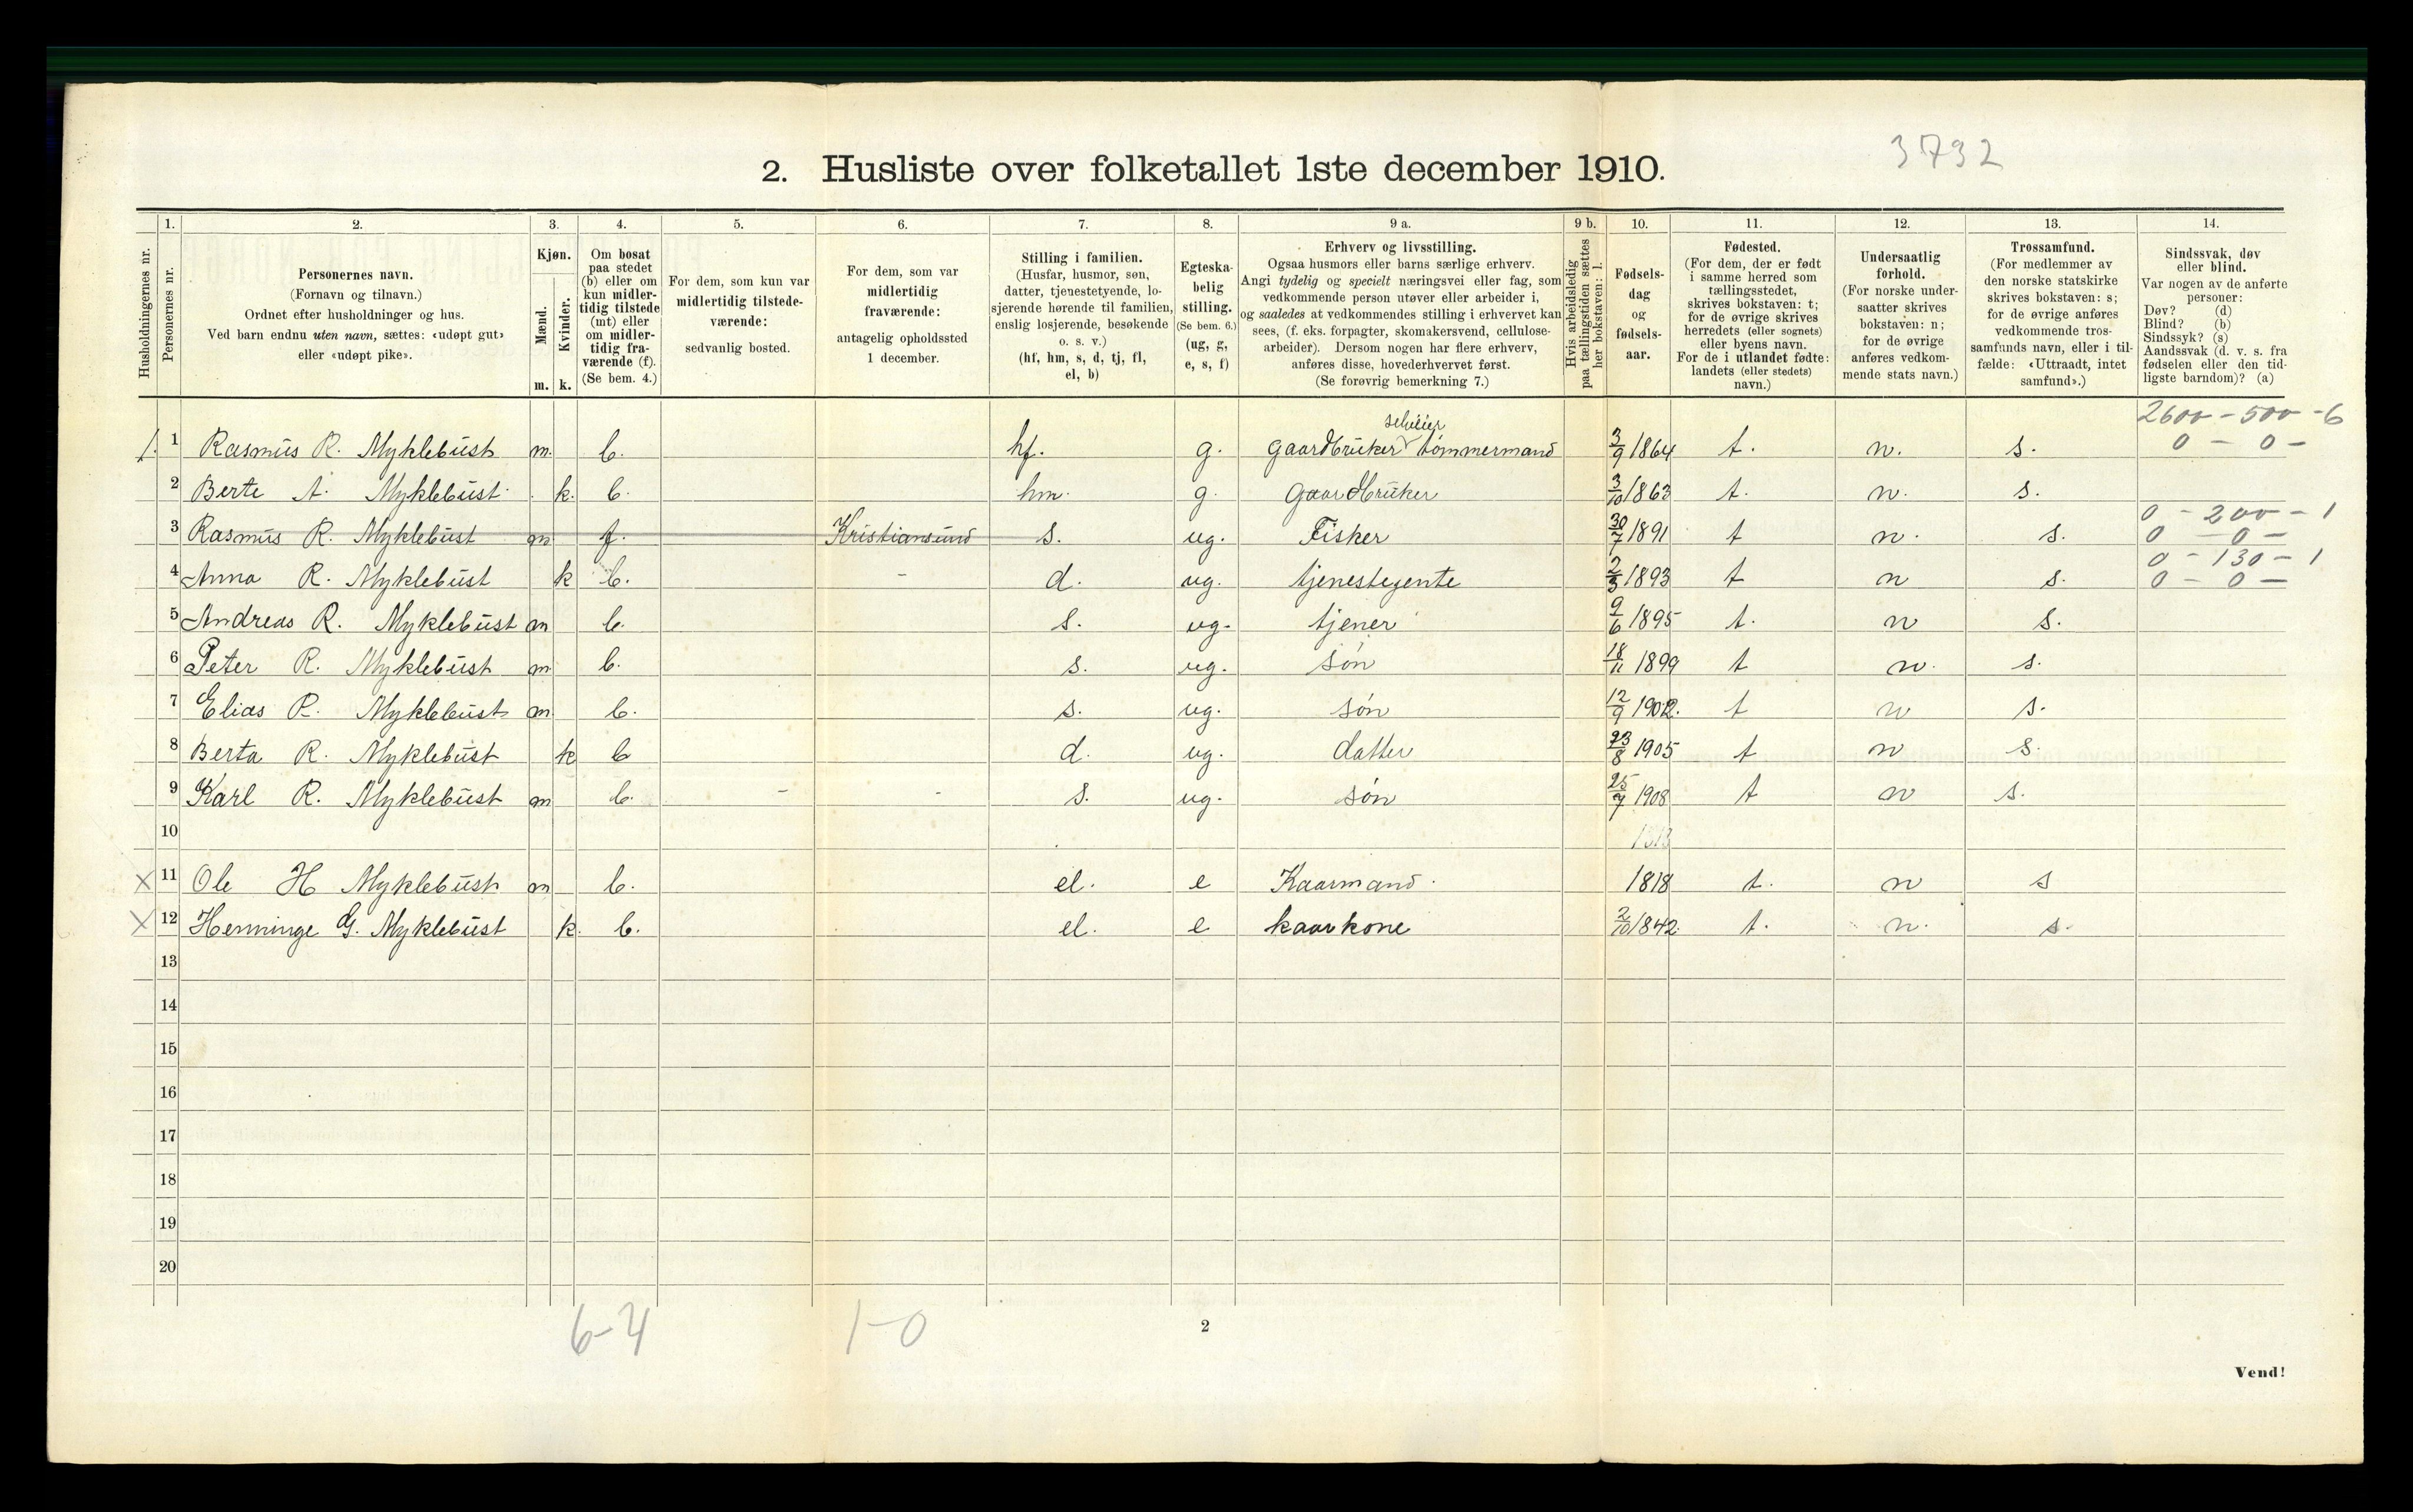 3732
2. Husliste over folketallet 1ste december 1910.
Husholdningernes nr.
1.
Personernes nr.
2.
Personernes navn.
(Fornavn og tilnavn.)
Ordnet efter husholdninger og hus.
Ved barn endnu uten navn, sættes: «udøpt gut»
eller «udøpt pike».
3.
Kjøn.
Mænd.
Kvinder.
m. k.
4.
Om bosat
paa stedet
(b) eller om
kun midler-
tidig tilstede
(mt) eller
om midler-
tidig fra-
værende (f).
(Se bem. 4.)
5.
For dem, som kun var
midlertidig tilstede-
værende:
sedvanlig bosted.
6.
For dem, som var
midlertidig
fraværende:
antagelig opholdssted
1 december.
7.
Stilling i familien.
(Husfar, husmor, søn,
datter, tjenestetyende, lo-
sjerende hørende til familien,
enslig losjerende, besøkende
o. s. v.)
(hf, hm, s, d, tj, fl,
el, b)
8.
Egteska-
belig
stilling.
(Se bem. 6.)
(ug, g,
e, s, f)
9 a.
Erhverv og livsstilling.
Ogsaa husmors eller barns særlige erhverv.
Angi tydelig og specielt næringsvei eller fag, som
vedkommende person utøver eller arbeider i,
og saaledes at vedkommendes stilling i erhvervet kan
sees, (f. eks. forpagter, skomakersvend, cellulose-
arbeider). Dersom nogen har flere erhverv,
anføres disse, hovederhvervet først.
(Se forøvrig bemerkning 7.)
9 b.
Hvis arbeidsledig
paa tællingstiden sættes
her bokstaven: l.
10.
Fødsels-
dag
og
fødsels-
aar.
11.
Fødested.
(For dem, der er født
i samme herred som
tællingsstedet,
skrives bokstaven: t;
for de øvrige skrives
herredets (eller sognets)
eller byens navn.
For de i utlandet fødte:
landets (eller stedets)
navn.)
12.
Undersaatlig
forhold.
(For norske under-
saatter skrives
bokstaven: n;
for de øvrige
anføres vedkom-
mende stats navn.)
13.
Trossamfund.
(For medlemmer av
den norske statskirke
skrives bokstaven: s;
for de øvrige anføres
vedkommende tros-
samfunds navn, eller i til-
fælde: «Uttraadt, intet
samfund».)
14.
Sindssvak, døv
eller blind.
Var nogen av de anførte
personer:
Døv? (d)
Blind? (b)
Sindssyk? (s)
Aandssvak (d. v. s. fra
fødselen eller den tid-
ligste barndom)? (a)
2600 - 500 - 6
selveier
1. 1 Rasmus R. Myklebust m. b. hf. g. Gaardbruker tømmermand 3/9 1864 t. n. s. 0 - 0 -
2 Berte A. Myklebust k. b. hm. g. Gaardbruker 3/10 1863 t. n. s.
0 - 200 - 1
3 Rasmus R. Myklebust m f. Kristiansund s. ug. Fisker 30/7 1891 t n. s. 0 - 0 -
0 - 130 - 1
4 Anna R. Myklebust k b. - d. ug. tjenestegente 2/3 1893 t n s. 0 - 0 -
5 Andreas R. Myklebust m b. s. ug. tjener 9/6 1895 t. n s.
6 Peter R. Myklebust m b. s. ug. søn 18/11 1899 t n. s.
7 Elias R. Myklebust m b. s. ug. søn 12/9 1902. t n s.
8 Berta R. Myklebust k b d. ug. datter 23/8 1905 t n s.
9 Karl R. Myklebust m b. - - s. ug. søn 25/7 1908 t n s.
10
X 11 Ole H Myklebust m b. el. e Kaarmand. 1818 t. n s
X 12 Henninge G. Myklebust k. b. el. e kaarkone 2/10 1842 t. n. s.
13
14
15
16
17
18
19
20
6-4 1-0
2
Vend!